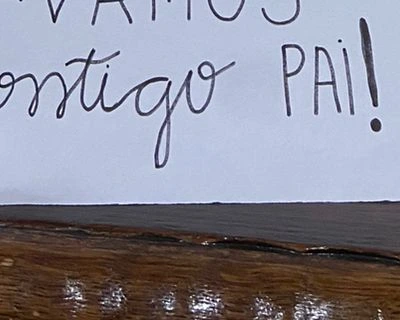 VAMOS
ontigo PAi!